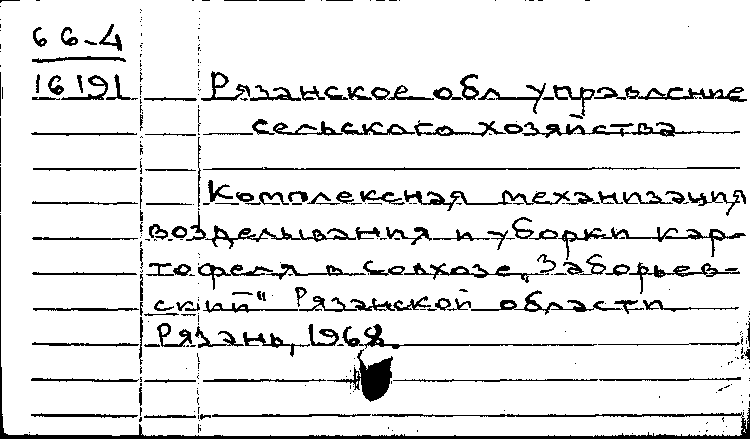 66-4
16191
Рязанское обл управление
сельского хозяйства
Комплексная механизация
возделывания и уборки кар-
тофеля в совхозе „Заборьев-
ский" Рязанской области.
Рязань, 1968.